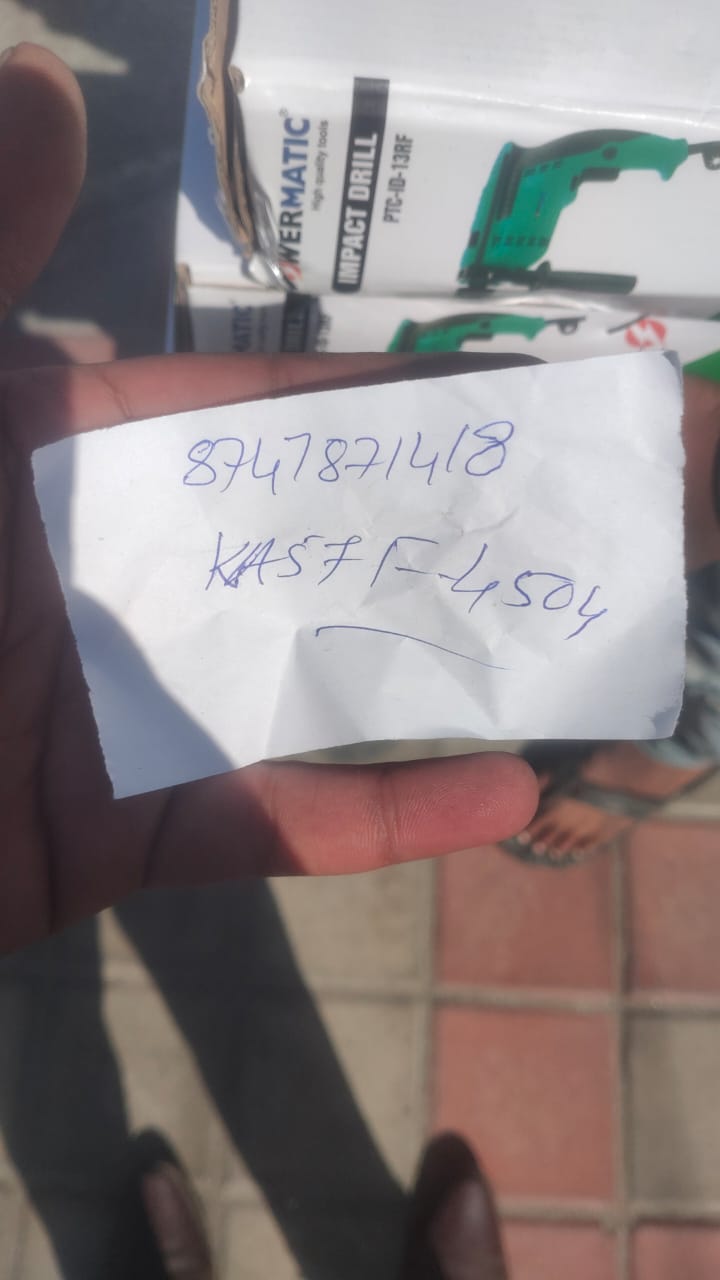 WERMATIC®
high quality tools
IMPACT DRILL
PTC-ID-13RF
MATIC
8747871418
KA57F-4504